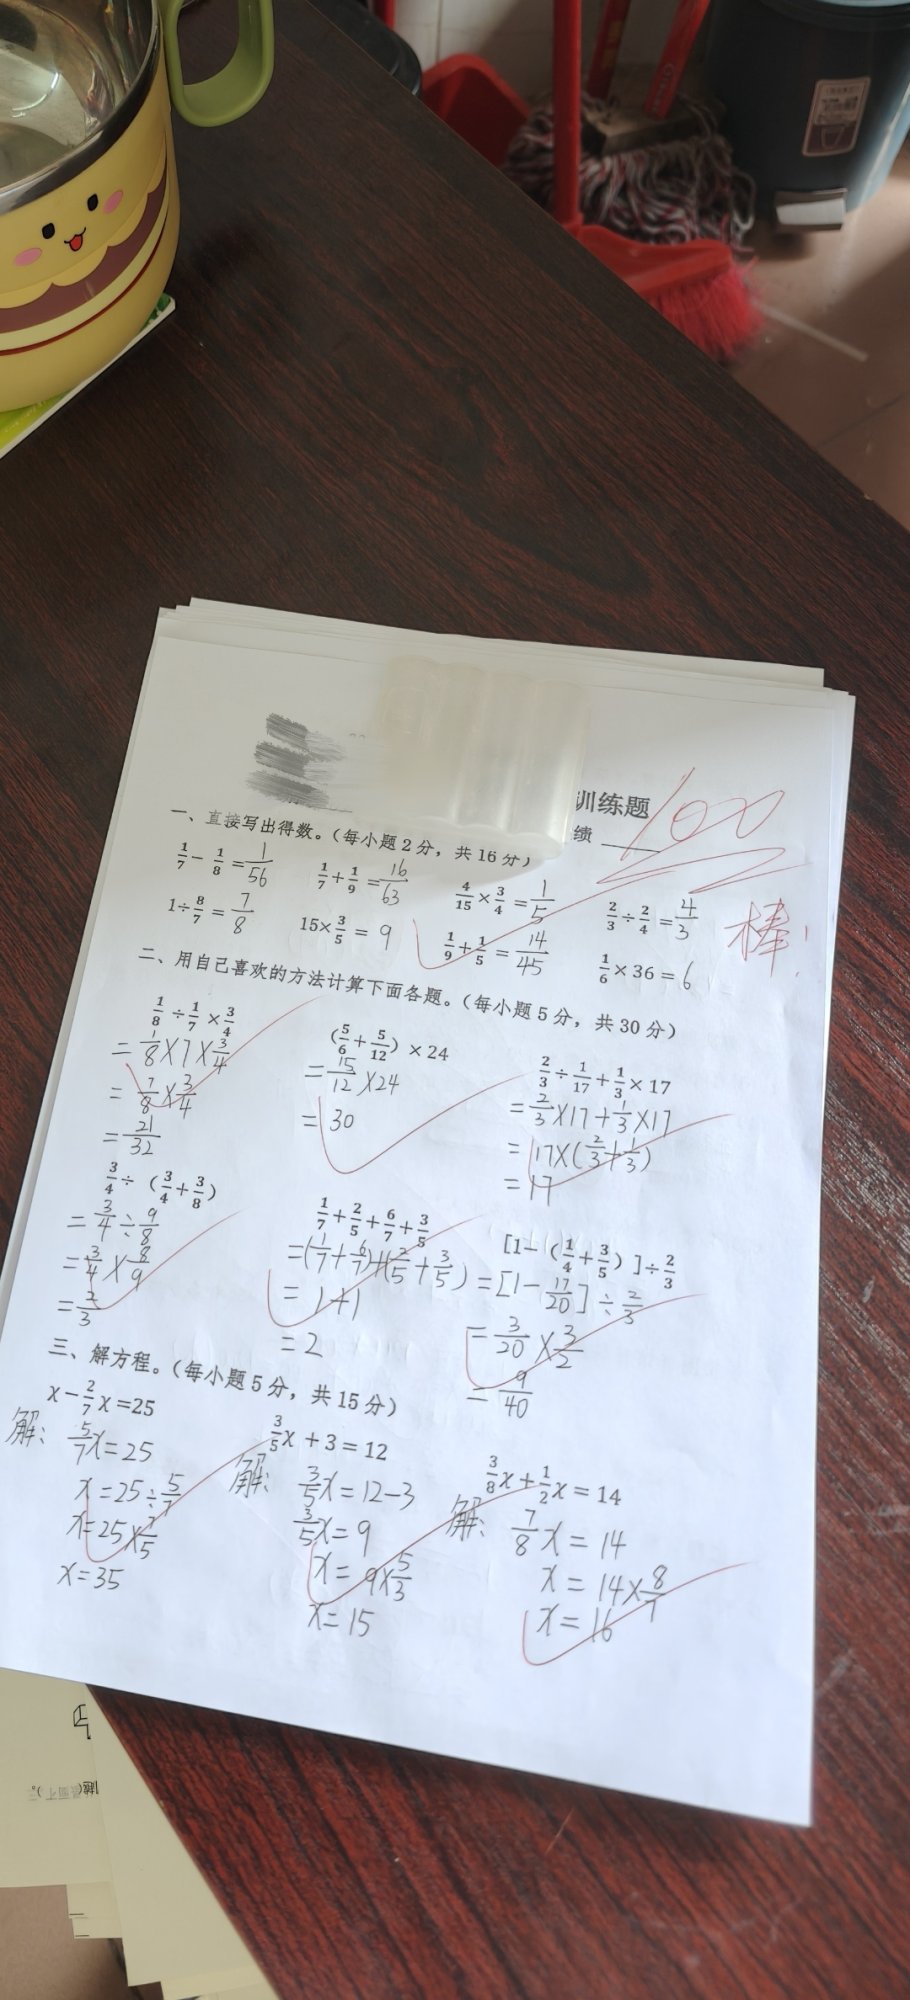 训练题
绩
100
棒!
一、直接写出得数。(每小题2分,共16分)
1/7 - 1/8 = 1/56 1/7 + 1/9 = 16/63 4/15 × 3/4 = 1/5 2/3 ÷ 2/4 = 4/3
1 ÷ 8/7 = 7/8 15 × 3/5 = 9 1/9 + 1/5 = 14/45 1/6 × 36 = 6
二、用自己喜欢的方法计算下面各题。(每小题5分,共30分)
1/8 ÷ 1/7 × 3/4
= 1/8 × 7 × 3/4
= 7/8 × 3/4
= 21/32
(5/6 + 5/12) × 24
= 15/12 × 24
= 30
2/3 ÷ 1/17 + 1/3 × 17
= 2/3 × 17 + 1/3 × 17
= 17 × (2/3 + 1/3)
= 17
3/4 ÷ (3/4 + 3/8)
= 3/4 ÷ 9/8
= 3/4 × 8/9
= 2/3
1/7 + 2/5 + 6/7 + 3/5
= (1/7 + 6/7) + (2/5 + 3/5)
= 1 + 1
= 2
[1 - (1/4 + 3/5)] ÷ 2/3
= [1 - 17/20] ÷ 2/3
= 3/20 × 3/2
= 9/40
三、解方程。(每小题5分,共15分)
x - 2/7 x = 25
解: 5/7 x = 25
x = 25 ÷ 5/7
x = 25 × 7/5
x = 35
3/5 x + 3 = 12
解: 3/5 x = 12 - 3
3/5 x = 9
x = 9 × 5/3
x = 15
3/8 x + 1/2 x = 14
解: 7/8 x = 14
x = 14 × 8/7
x = 16